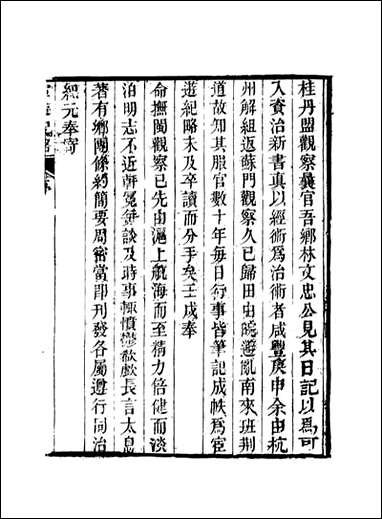 桂丹盟觀察彙官吾鄉林文忠公見其日記以爲可
入資治新書真以經術爲治術者咸豐庚申余由杭
州解組返蘇門觀察久已歸田由皖避亂南來班荆
道故知其服官數十年每日行事皆筆記成帙爲宦
遊紀略未及卒讀而分手矣壬戌奉
命撫閩觀察已先由滬上航海而至精力倍健而淡
泊明志不近朝冕每談及時事輒憤懣欷歔長言太息
著有鄉團條約簡要周密當即刊發各屬遵行同治
紀元奉寄